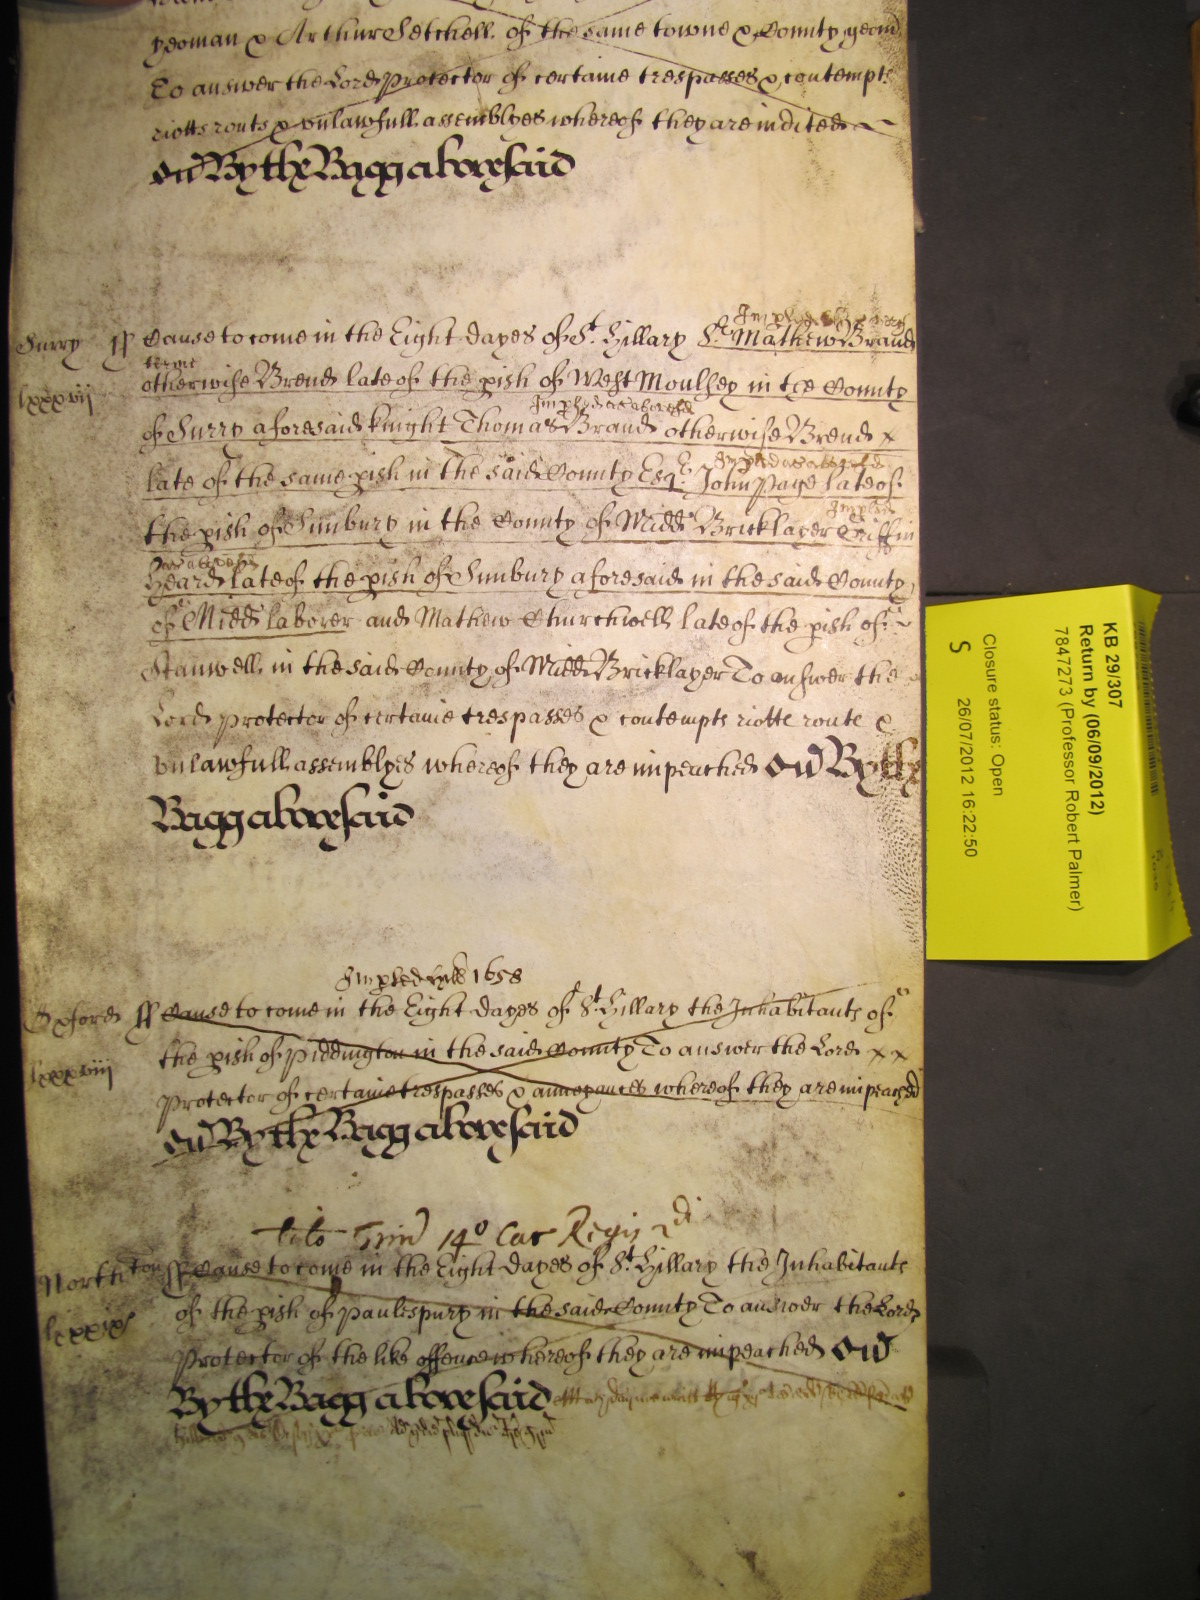 yeoman & Arthur Setchell of the same towne & County yeom
To answer the Lord Protector of certaine trespasses & contempts
riotts routs & vnlawfull assemblyes whereof they are indited
and By the Bagg abovesaid
Surry ss Cause to come in the Eight dayes of St. Hillary Sr. Mathew Brand
terme
lxxxvii
otherwise Brend late of the pish of West Moulsey in the County
of Surry aforesaid knight Thomas Brand otherwise Brend x
late of the same pish in the said County Esqr John Page late of
the pish of Sunbury in the County of Midd Bricklayer Griffin
Heard late of the pish of Sunbury aforesaid in the said County
of Midd laborer and Mathew Churchwell late of the pish of
Stanwell in the said County of Midd Bricklayer To answer the
Lord Protector of certaine trespasses & contempts riotte route &
vnlawfull assemblyes whereof they are impeached and By the
Bagg abovesaid
Impled 1658
Oxford ss Cause to come in the Eight dayes of St. Hillary the Inhabitants of
lxxxviii
the pish of Piddington in the said County To answer the Lord x x
Protector of certaine trespasses & annoyances whereof they are impeached
and By the Bagg abovesaid
Trin 14o Car Regis
Northton ss Cause to come in the Eight dayes of St. Hillary the Inhabitants
lxxxix
of the pish of Paulespury in the said County To answer the Lord
Protector of the like offence whereof they are impeached and
By the Bagg abovesaid
KB 29/307
Return by (06/09/2012)
7847273 (Professor Robert Palmer)
Closure status: Open
S 26/07/2012 16:22:50